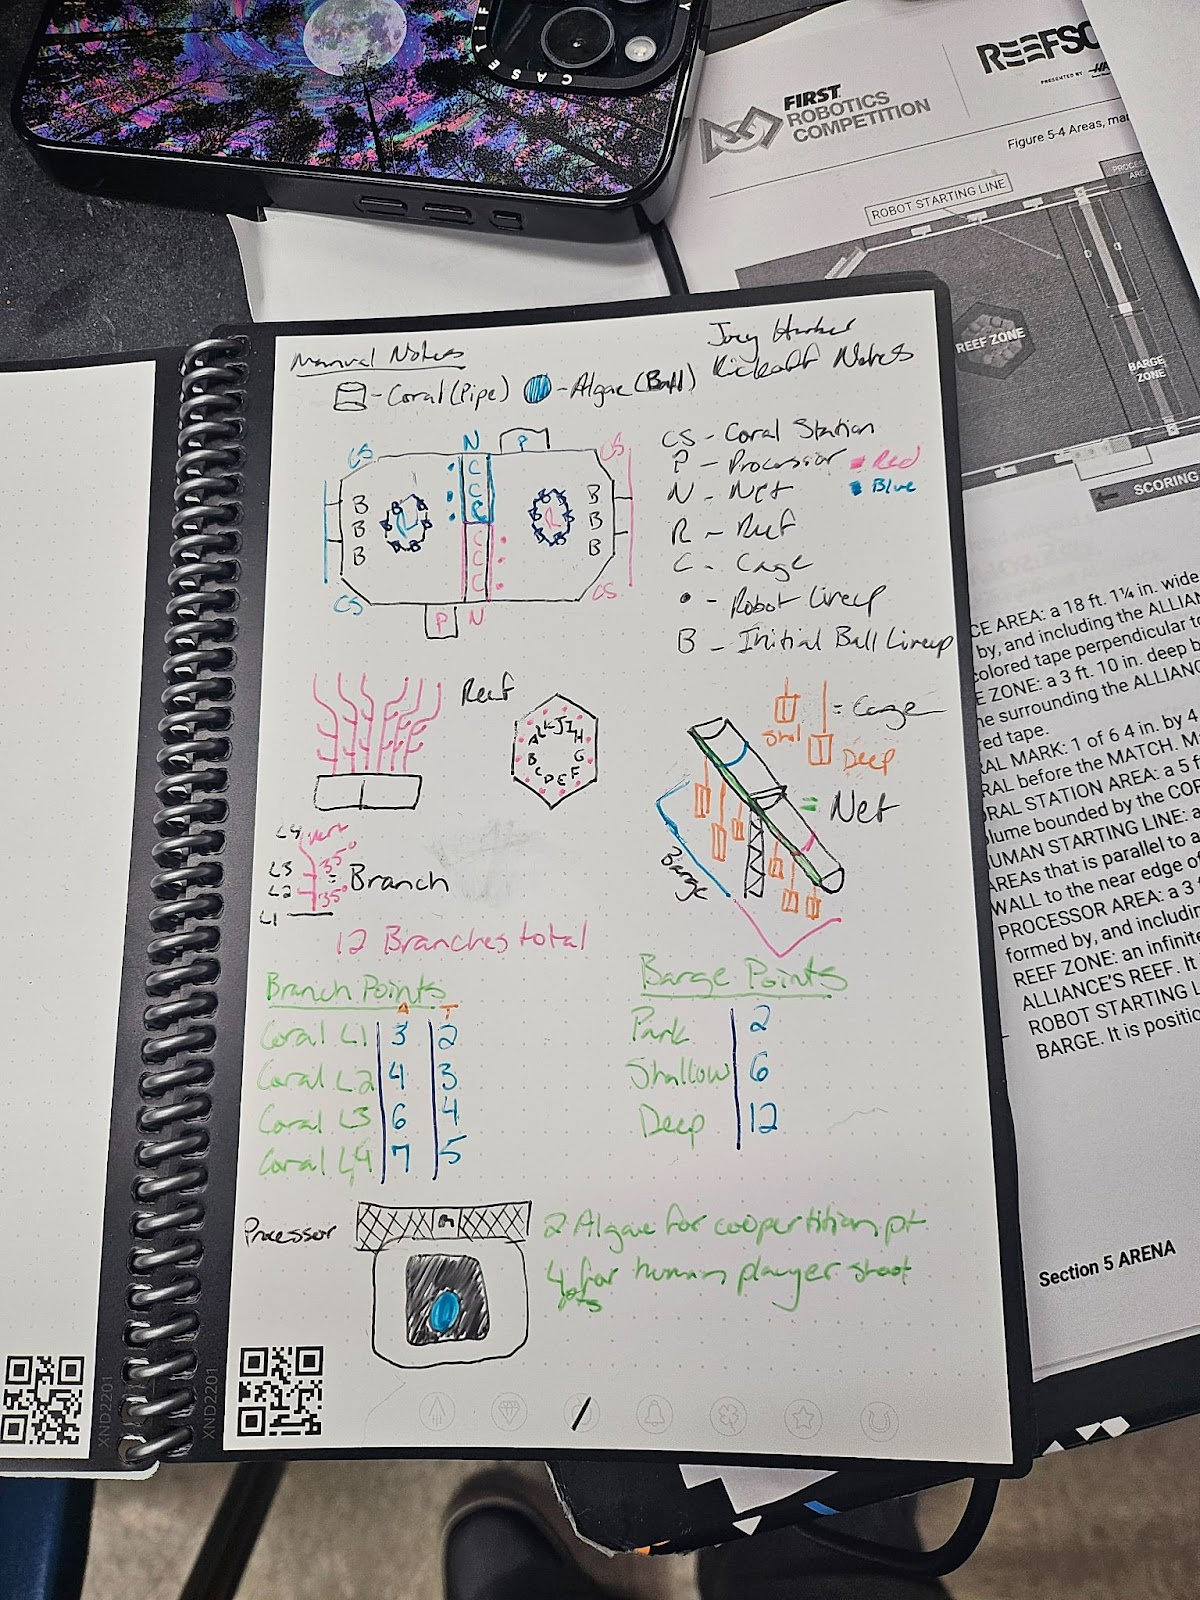 CASETIFY
REEFSC
PRESENTED BY
FIRST
ROBOTICS
COMPETITION
Figure 5-4 Areas, ma
ROBOT STARTING LINE
PROCE
AREA
REEF ZONE
BARGE
ZONE
SCORING
CE AREA: a 18 ft. 1¼ in. wide
by, and including the ALLIAN
colored tape perpendicular to
E ZONE: a 3 ft. 10 in. deep b
ne surrounding the ALLIANC
red tape.
RAL MARK: 1 of 6 4 in. by 4
RAL before the MATCH. M
ORAL STATION AREA: a 5 f
olume bounded by the COR
UMAN STARTING LINE: a
AREAs that is parallel to a
WALL to the near edge of
PROCESSOR AREA: a 3
formed by, and includin
REEF ZONE: an infinite
ALLIANCE'S REEF. It
ROBOT STARTING L
BARGE. It is positio
Section 5 ARENA
Manual Notes
Kickoff Notes
- Coral (Pipe)
- Algae (Ball)
CS - Coral Station
P - Processor
- Red
N - Net
- Blue
R - Reef
C - Cage
• - Robot Lineup
B - Initial Ball Lineup
CS N P CS
C
C
C
B B
B R R B
B B
C
C
C
CS P N CS
Reef
A L K J I H
B G
C D E F
= Cage
Shal
Deep
= Net
Barge
L4 Vert
L3 35°
L2 35°
L1
= Branch
12 Branches total
Branch Points
A T
Coral L1 3 2
Coral L2 4 3
Coral L3 6 4
Coral L4 7 5
Barge Points
Park 2
Shallow 6
Deep 12
Processor
2 Algae for coopertition pt
4 pts for human player shoot
XND2201
XND2201